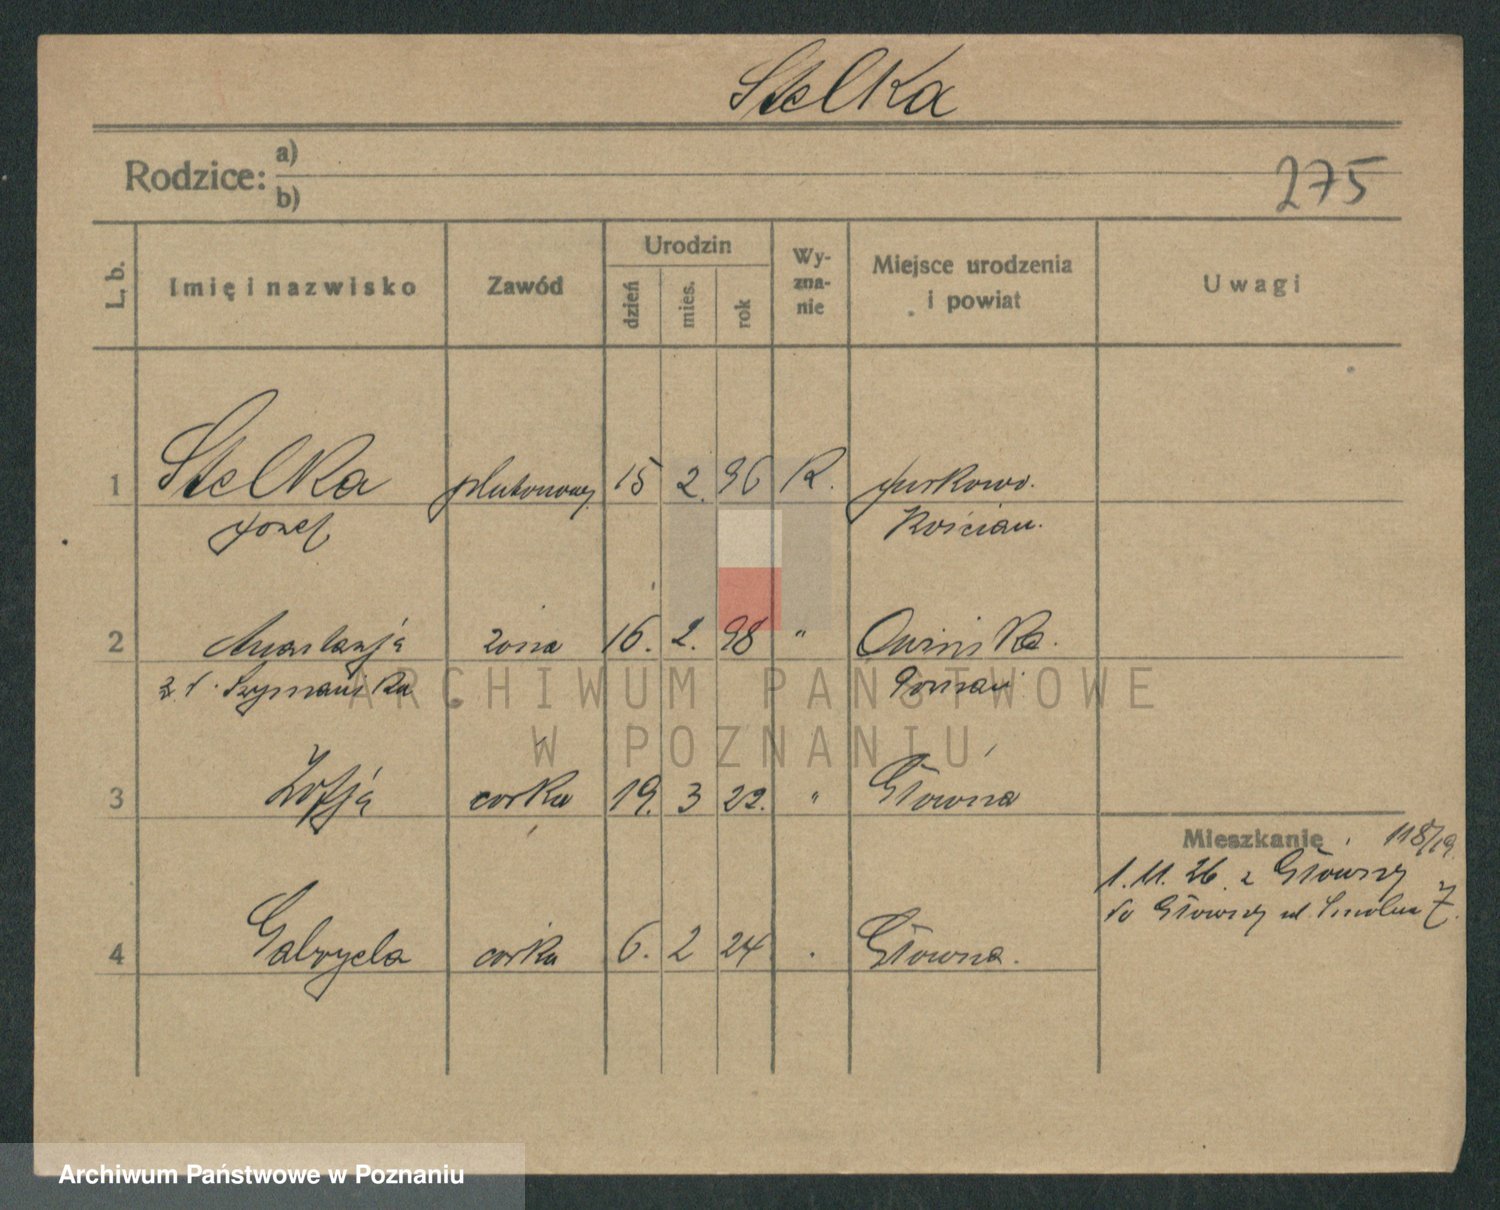 Stelka
Rodzice: a)
b)
275
L. b. Imię i nazwisko Zawód Urodzin dzień mies. rok Wy-zna-nie Miejsce urodzenia i powiat Uwagi
1 Stelka plutonowy 15 2. 96 R. Jurkowo.
Józef Kościan.
2 Anastazja żona 16. 2. 98 " Owińska.
z d. Szymańska Poznań
ARCHIWUM PAŃSTWOWE
W POZNANIU
3 Zofja córka 19. 3 22. " Główna
Mieszkanie 118/19.
1.11.26. z Główny
do Główny ul. Smolna 7.
4 Gabryela córka 6. 2 24 . Główna.
Archiwum Państwowe w Poznaniu